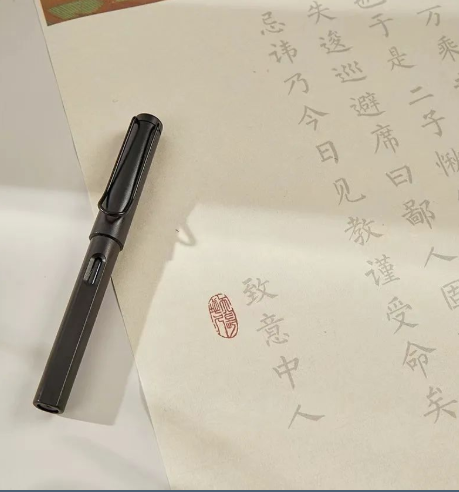 万乘
也于是二子愀
失逡巡避席曰鄙人固
忌讳乃今日见教谨受命矣
致意中人